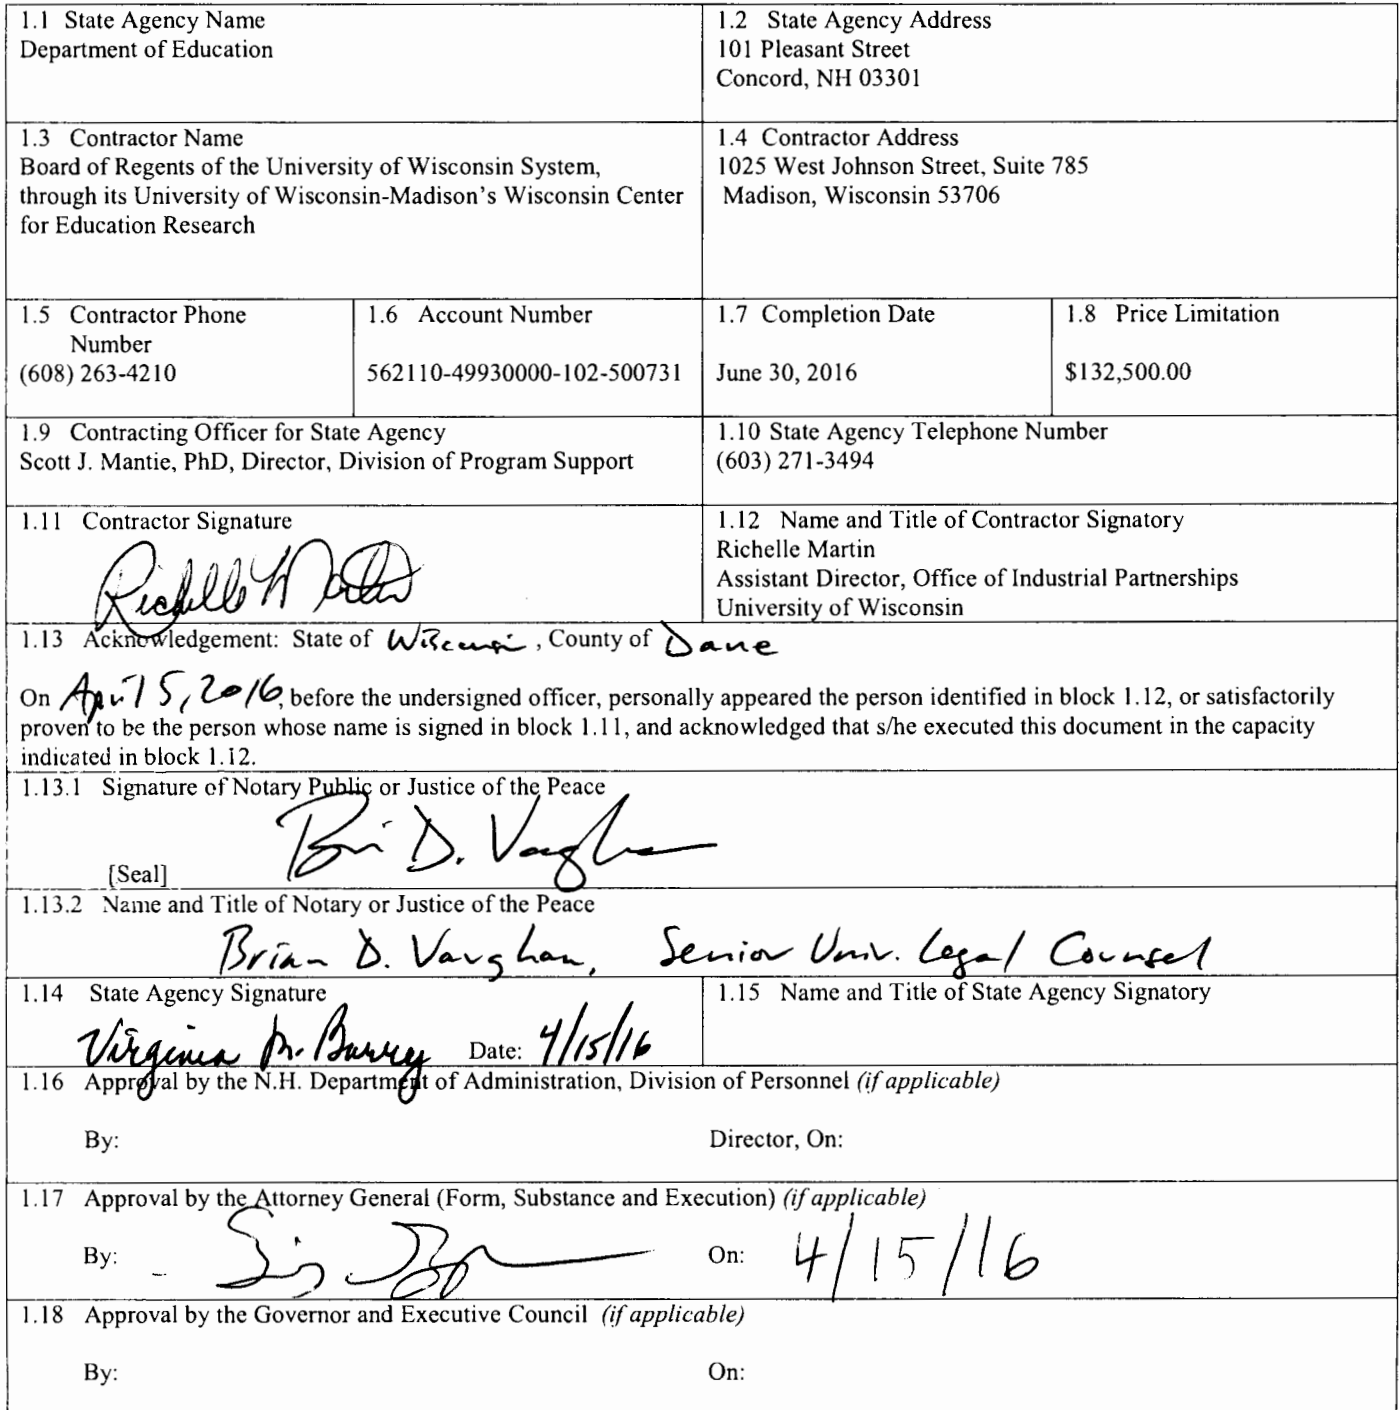 1.1 State Agency Name
Department of Education
1.2 State Agency Address
101 Pleasant Street
Concord, NH 03301
1.3 Contractor Name
Board of Regents of the University of Wisconsin System,
through its University of Wisconsin-Madison's Wisconsin Center
for Education Research
1.4 Contractor Address
1025 West Johnson Street, Suite 785
Madison, Wisconsin 53706
1.5 Contractor Phone
Number
(608) 263-4210
1.6 Account Number
562110-49930000-102-500731
1.7 Completion Date
June 30, 2016
1.8 Price Limitation
$132,500.00
1.9 Contracting Officer for State Agency
Scott J. Mantie, PhD, Director, Division of Program Support
1.10 State Agency Telephone Number
(603) 271-3494
1.11 Contractor Signature
Richelle Martin
1.12 Name and Title of Contractor Signatory
Richelle Martin
Assistant Director, Office of Industrial Partnerships
University of Wisconsin
1.13 Acknowledgement: State of Wisconsin, County of Dane
On April 5, 2016, before the undersigned officer, personally appeared the person identified in block 1.12, or satisfactorily
proven to be the person whose name is signed in block 1.11, and acknowledged that s/he executed this document in the capacity
indicated in block 1.12.
1.13.1 Signature of Notary Public or Justice of the Peace
Brian D. Vaughan
[Seal]
1.13.2 Name and Title of Notary or Justice of the Peace
Brian D. Vaughan, Senior Univ. Legal Counsel
1.14 State Agency Signature
Virginia M. Barry Date: 4/15/16
1.15 Name and Title of State Agency Signatory
1.16 Approval by the N.H. Department of Administration, Division of Personnel (if applicable)
By: Director, On:
1.17 Approval by the Attorney General (Form, Substance and Execution) (if applicable)
By: On: 4/15/16
1.18 Approval by the Governor and Executive Council (if applicable)
By: On: